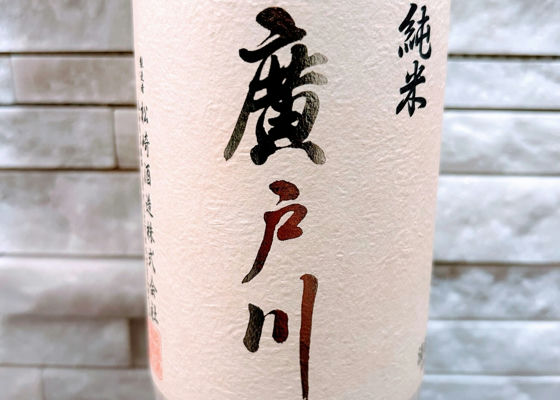 純米
廣戸川
製造者 松崎酒造株式会社